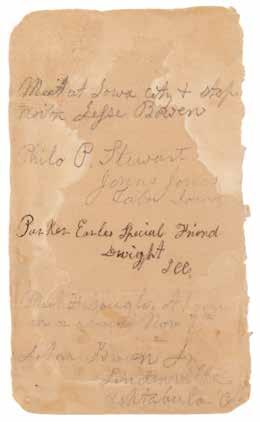 Meet at Iowa City & stop
with Jesse Bowen
Philo P. Stewart
Jonas Jones
Tabor Iowa
Parker Earles Special Friend
Dwight
Ill
Nov
John Brown Jr
Lindenville
Ashtabula Co